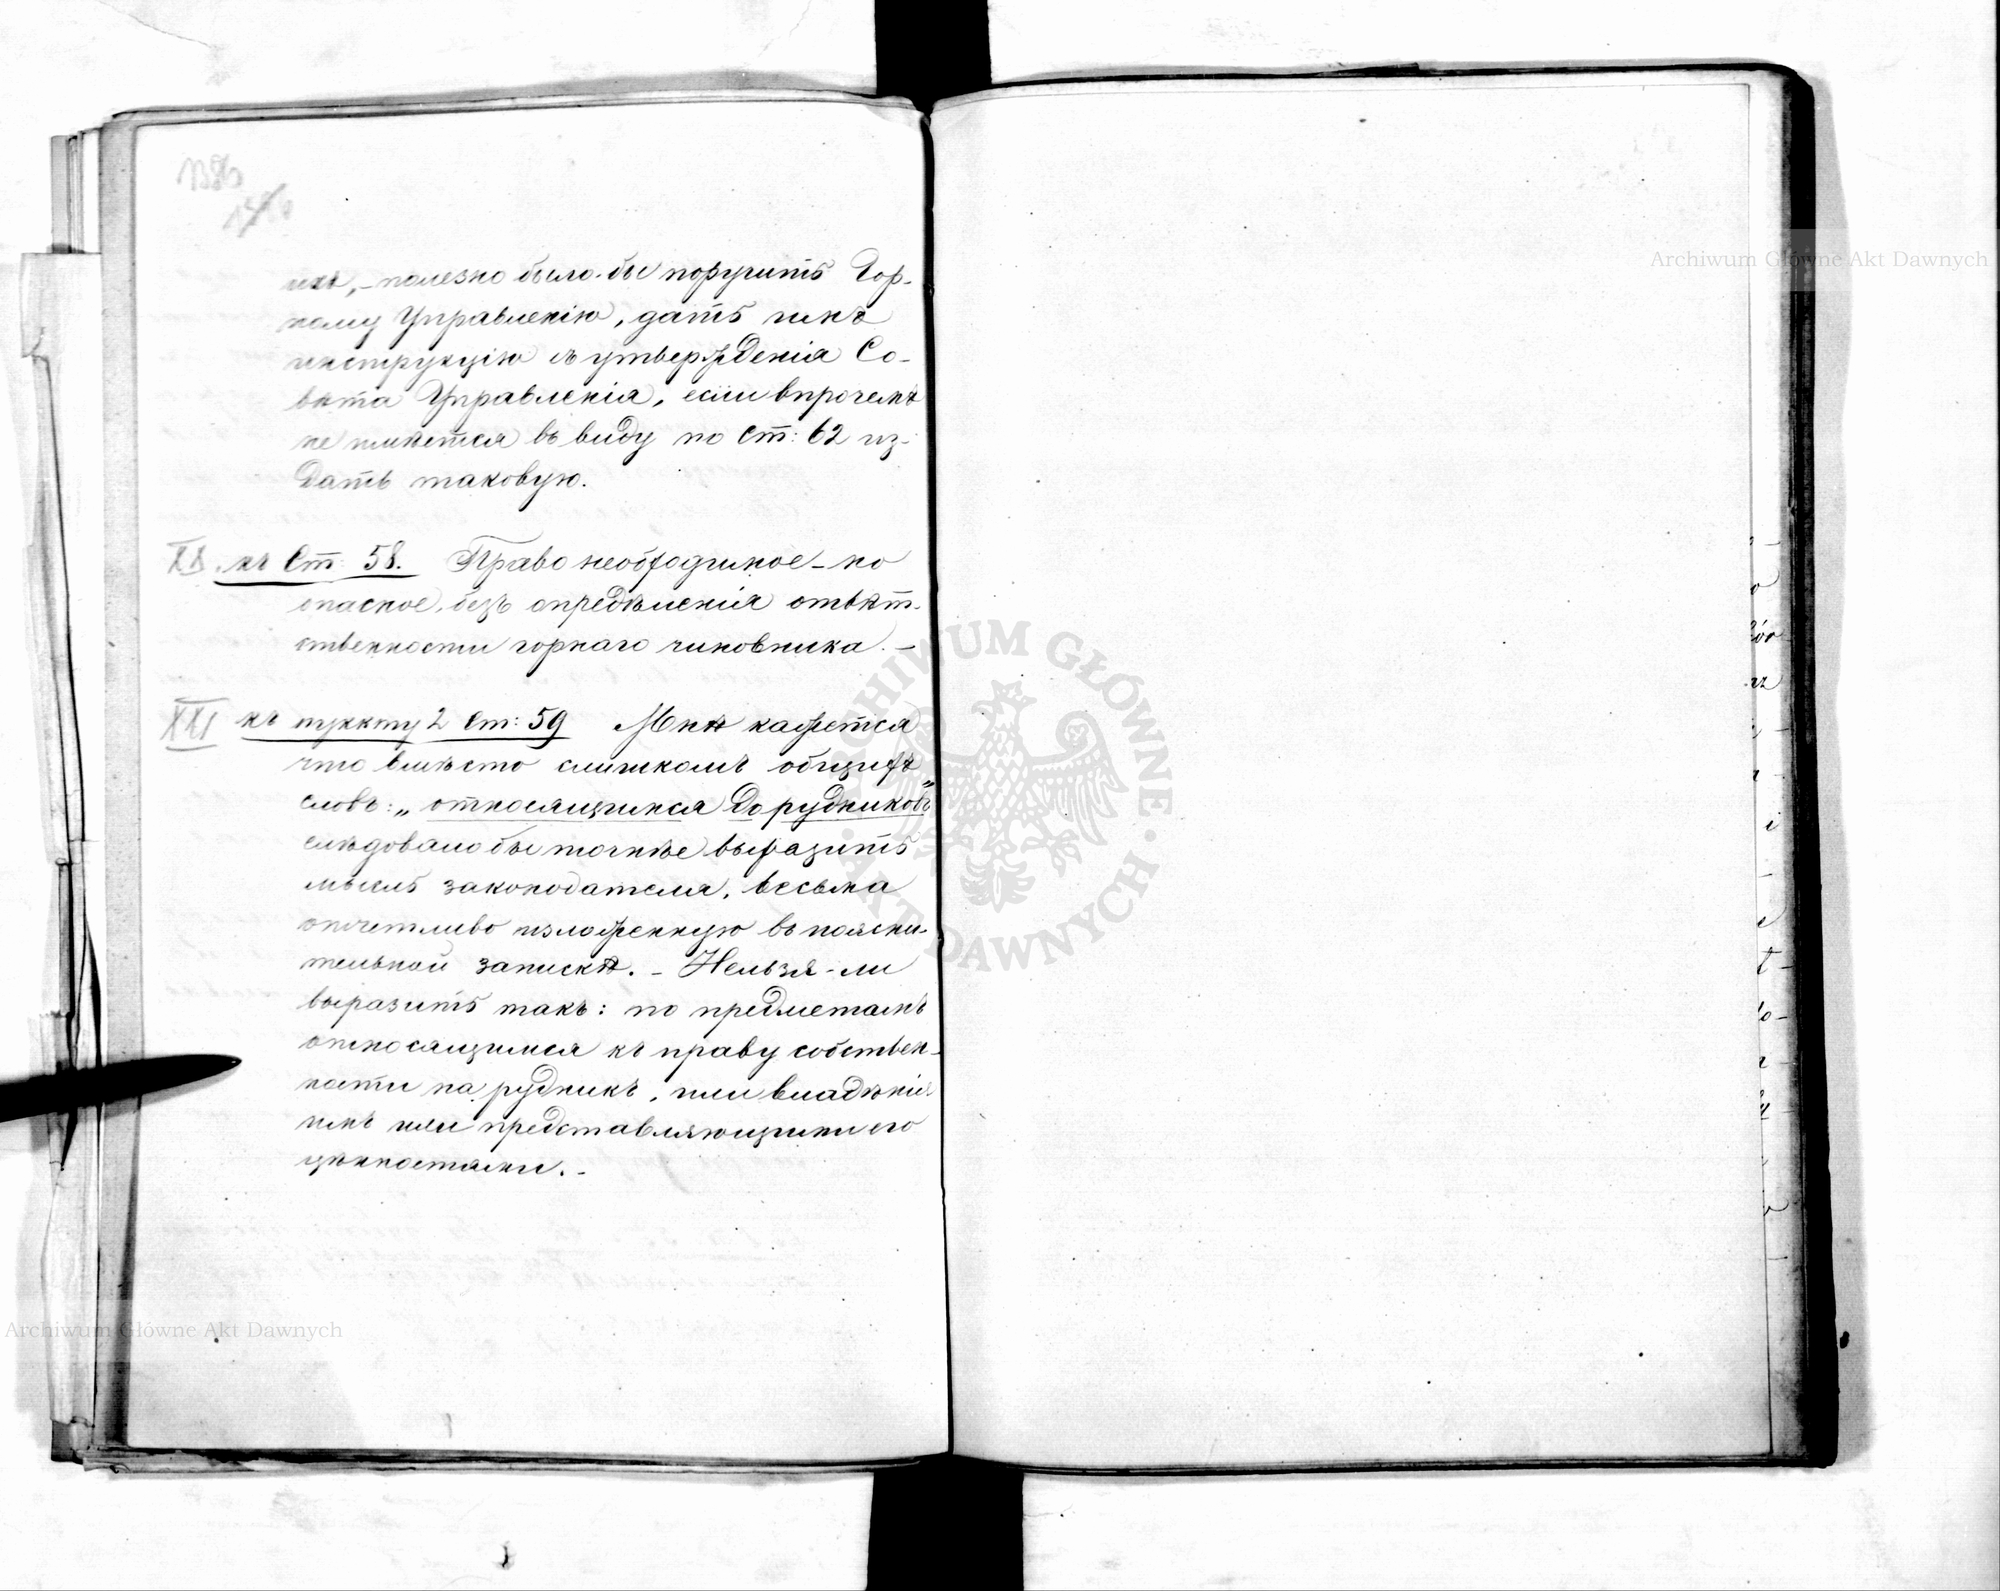 ихъ, – полезно было-бы поручить Гор-
ному Управленію, дать имъ
инструкцію съ утвержденія Со-
вѣта Управленія, если впрочемъ
не имѣется въ виду по Ст: 62 из-
дать таковую.
XX. къ Ст: 58. Право необходимое – но
опасное, безъ опредѣленія отвѣт-
ственности горнаго чиновника. –
XXI къ пункту 2 Ст: 59 Мнѣ кажется
что вмѣсто слишкомъ общихъ
словъ: „относящимся до рудниковъ"
слѣдовало бы точнѣе выразить
мысль законодателя, весьма
отчетливо изложенную въ поясни-
тельной запискѣ. – Нельзя-ли
выразить такъ: по предметамъ
относящимся къ праву собствен-
ности на рудникъ, или владѣнія
имъ или представляющими его
цѣнностями. –
ARCHIWUM GŁÓWNE AKT DAWNYCH
Archiwum Główne Akt Dawnych
Archiwum Główne Akt Dawnych